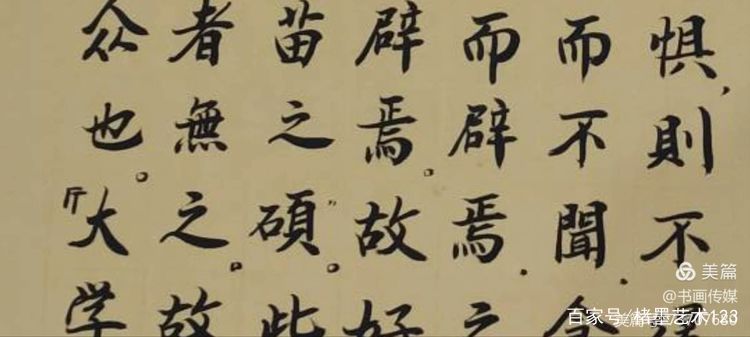 惧,則不
而不聞,食
而辟焉,之
辟焉。故好
苗之碩”。此
者無之。故
众也。大学
斤
美篇
@书画传媒
百家号/楮墨艺术123